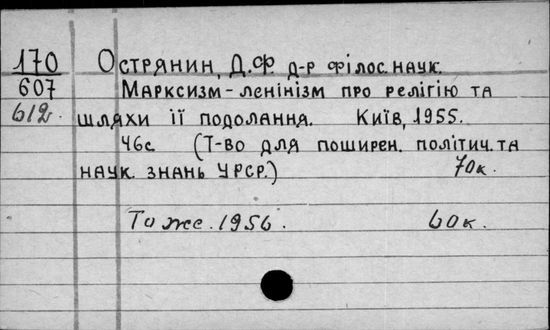 170 Острянин, Д.Ф. д-р філос. наук.
607 Марксизм-ленінізм про релігію та
612. шляхи її подолання. Київ, 1955.
46с (Т-во для поширен. політич. та
наук. знань УРСР.) 70к.
То же. 1956. 60к.